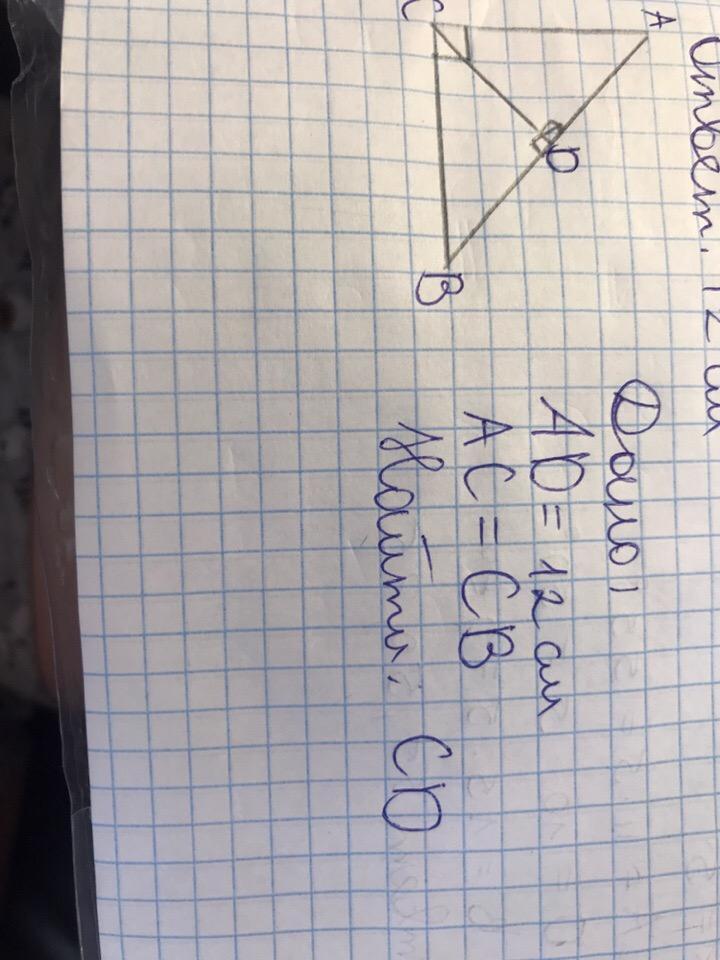 Ответ. 12 см
A
C
D
B
Дано:
AD = 12 см
AC = CB
Найти: CD